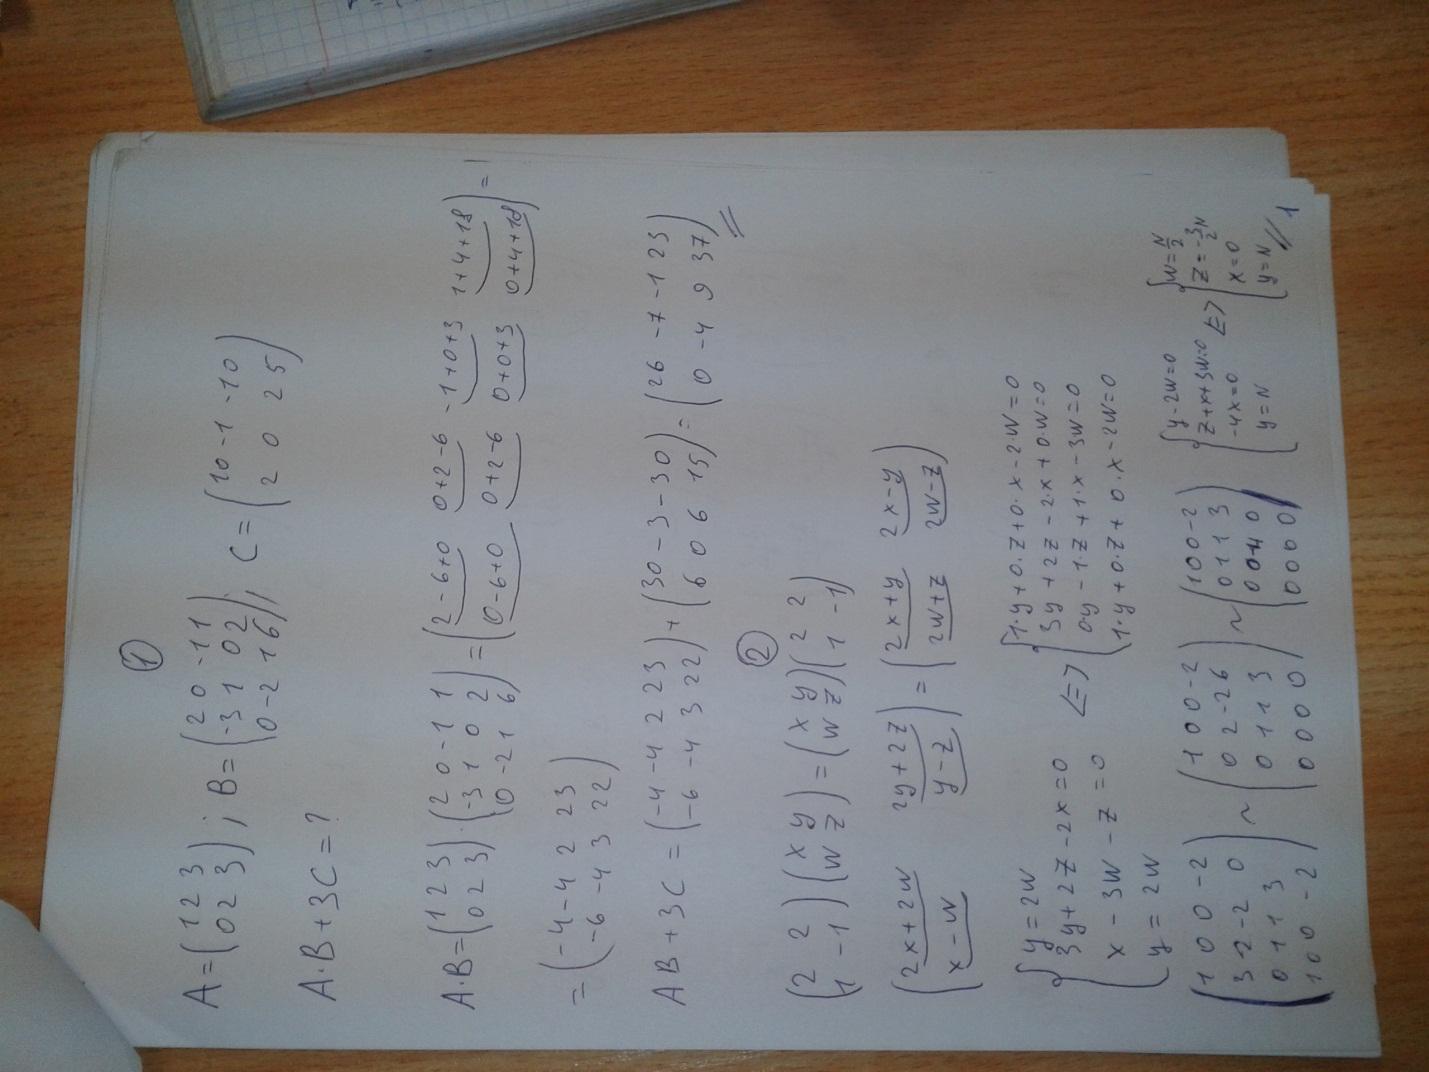 ①
A = (1 2 3 / 0 2 3) ; B = (2 0 -1 1 / -3 1 0 2 / 0 -2 1 6) ; C = (10 -1 -10 / 2 0 2 5)
A·B + 3C = ?
A·B = (1 2 3 / 0 2 3) · (2 0 -1 1 / -3 1 0 2 / 0 -2 1 6) = (2-6+0 0+2-6 -1+0+3 1+4+18 / 0-6+0 0+2-6 0+0+3 0+4+18) =
= (-4 -4 2 23 / -6 -4 3 22)
AB + 3C = (-4 -4 2 23 / -6 -4 3 22) + (30 -3 -30 / 6 0 6 15) = (26 -7 -1 23 / 0 -4 9 37)
②
(2 2 / 1 -1) (x y / w z) = (x y / w z) (2 2 / 1 -1)
(2x+2w 2y+2z / x-w y-z) = (2x+y 2x-y / 2w+z 2w-z)
{ y = 2w / 3y+2z-2x=0 / x-3w-z=0 / y=2w <=> { 1·y+0·z+0·x-2·w=0 / 3y+2z-2·x+0·w=0 / 0y-1·z+1·x-3w=0 / 1·y+0·z+0·x-2w=0
(1 0 0 -2 / 3 2 -2 0 / 0 1 1 3 / 1 0 0 -2) ~ (1 0 0 -2 / 0 2 -2 6 / 0 1 1 3 / 0 0 0 0) ~ (1 0 0 -2 / 0 1 1 3 / 0 0 -4 0 / 0 0 0 0) { y-2w=0 / z+x+3w=0 / -4x=0 / y=N <=> { w=N/2 / z=-3/2N / x=0 / y=N // 1